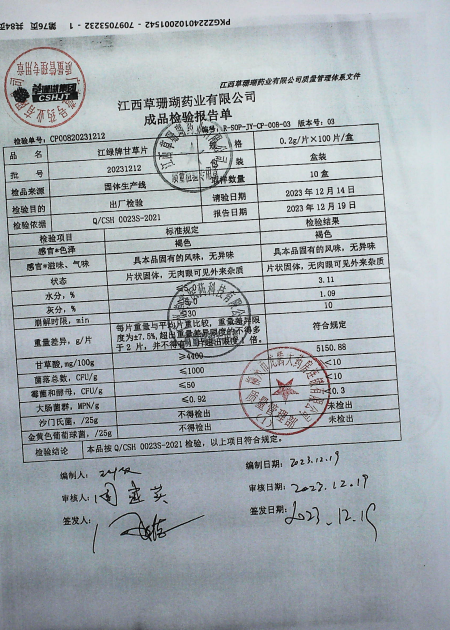 PKGZ2240102001542 - 7097053232 - 1 - 第76页 共84页
CSHJT
质量管理专用章
江西草珊瑚药业有限公司质量管理体系文件
江西草珊瑚药业有限公司
成品检验报告单
检验单号: CP00820231212 编号: R-SOP-JY-CP-008-03 版本号: 03
品 名 江绿牌甘草片 格 0.2g/片×100片/盒
批 号 20231212 装 盒装
样品来源 固体生产线 数量 10盒
检验目的 出厂检验 请验日期 2023年12月14日
检验依据 Q/CSH 0023S-2021 报告日期 2023年12月19日
检验项目 标准规定 检验结果
感官*色泽 褐色 褐色
感官*滋味、气味 具本品固有的风味,无异味 具本品固有的风味,无异味
状态 片状固体,无肉眼可见外来杂质 片状固体,无肉眼可见外来杂质
水分,% 3.11
灰分,% 1.09
崩解时限,min 10
重量差异,g/片 每片重量与平均片重比较,重量差异限度为±7.5%,超出重量差异限度的不得多于2片,并不得有1片超出限度1倍。 符合规定
甘草酸,mg/100g ≥4400 5150.88
菌落总数,CFU/g ≤1000 <10
霉菌和酵母,CFU/g ≤50 <10
大肠菌群,MPN/g ≤0.92 <0.3
沙门氏菌,/25g 不得检出 未检出
金黄色葡萄球菌,/25g 不得检出 未检出
检验结论 本品按 Q/CSH 0023S-2021 检验,以上项目符合规定。
编制人: 编制日期: 2023.12.19
审核人: 审核日期: 2023.12.19
签发人: 签发日期: 2023.12.19